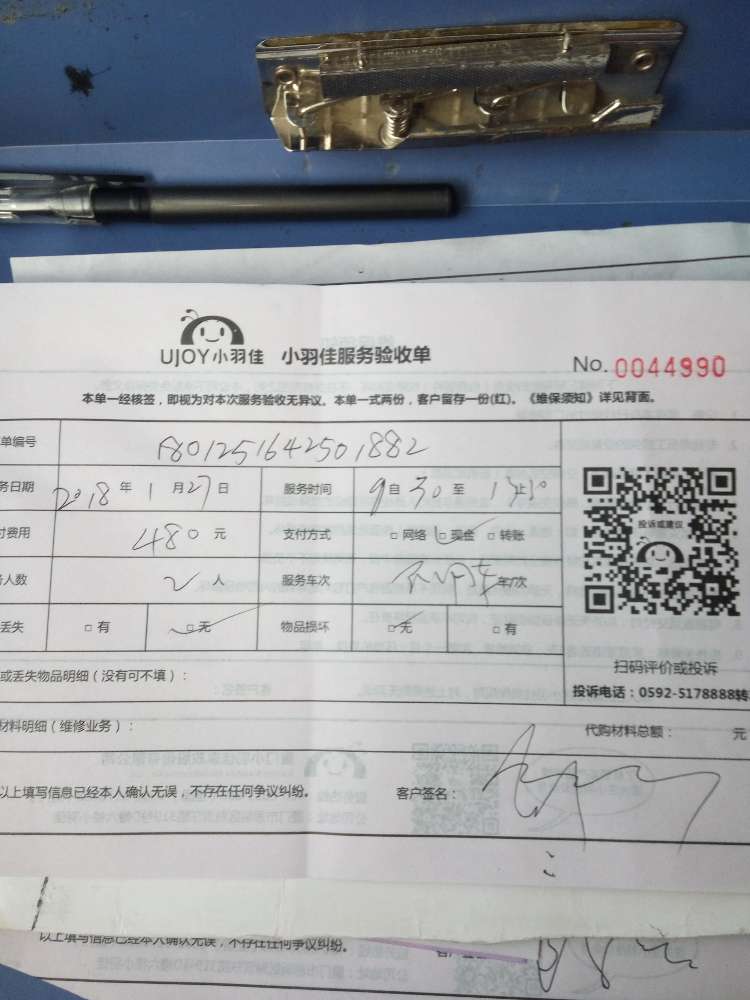 UJOY小羽佳 小羽佳服务验收单
No. 0044990
本单一经核签，即视为对本次服务验收无异议。本单一式两份，客户留存一份(红)。《维保须知》详见背面。
单编号 A801251642501882
务日期 2018年1月27日 服务时间 9自30至
付费用 480元 支付方式 □网络 □现金 □转账
人数 2人 服务车次 不用车 车/次
丢失 □有 □无 物品损坏 □无 □有
投诉或建议
扫码评价或投诉
投诉电话：0592-5178888转
或丢失物品明细（没有可不填）：
材料明细（维修业务）： 代购材料总额： 元
以上填写信息已经本人确认无误，不存在任何争议纠纷。 客户签名：
以上填写信息已经本人确认无误，不存在任何争议纠纷。